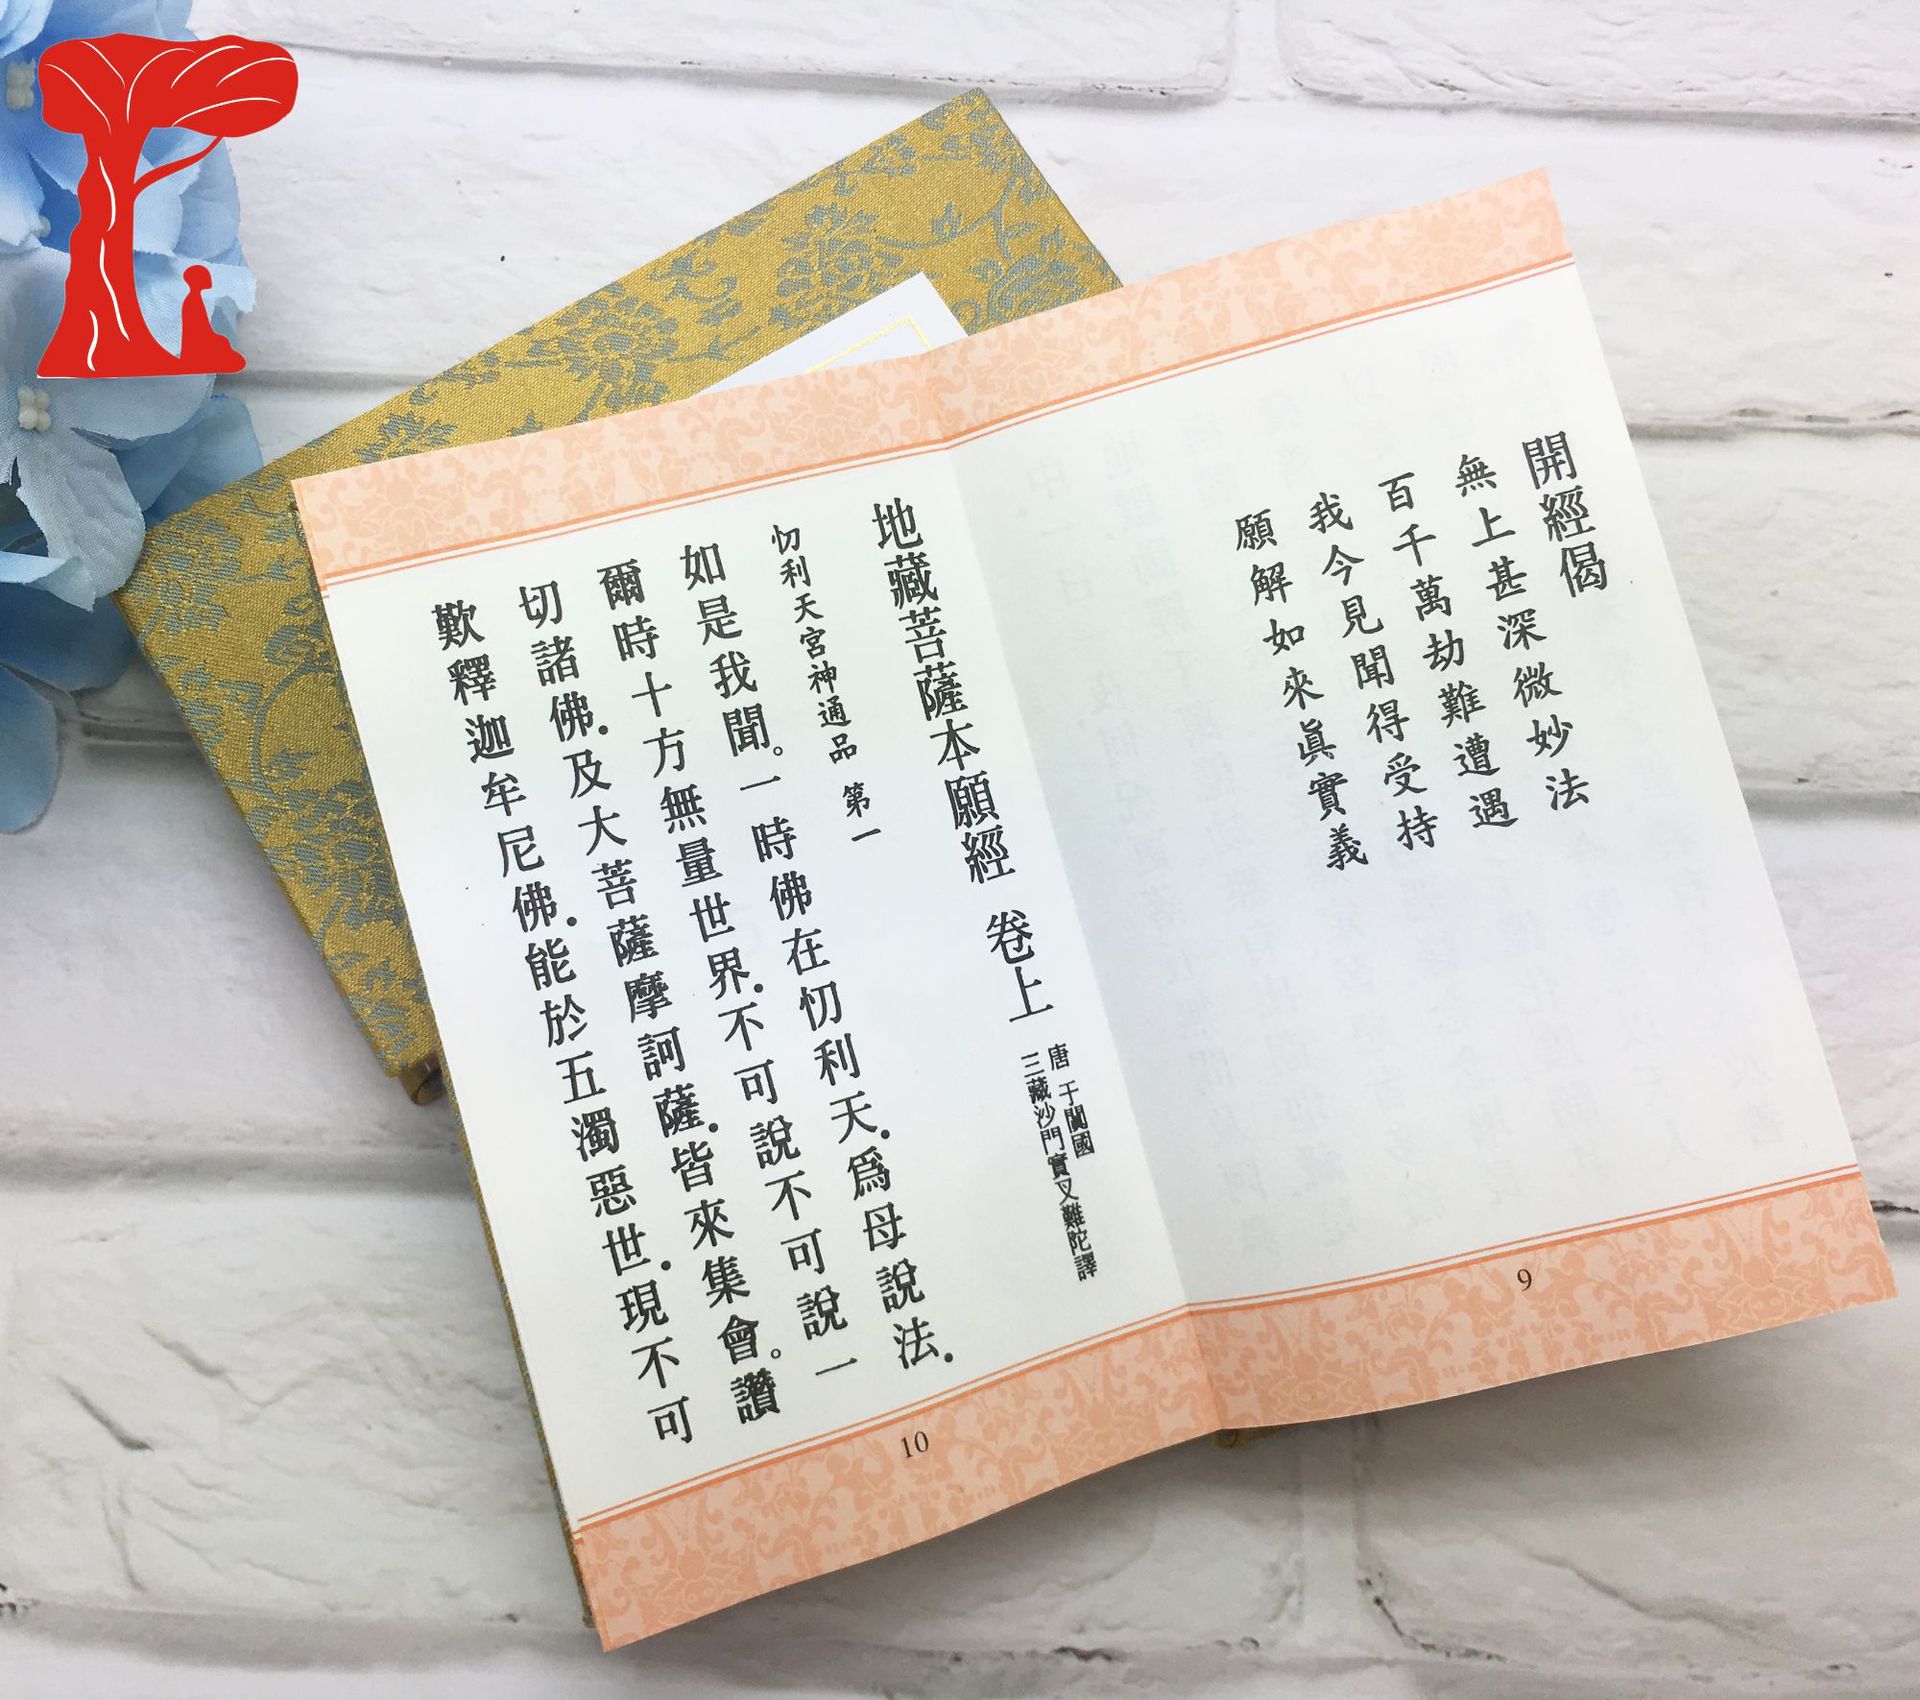 開經偈
無上甚深微妙法
百千萬劫難遭遇
我今見聞得受持
願解如來眞實義
9
地藏菩薩本願經 卷上
唐 于闐國
三藏沙門實叉難陀譯
忉利天宮神通品 第一
如是我聞。一時佛在忉利天.爲母說法.
爾時十方無量世界.不可說不可說一
切諸佛.及大菩薩摩訶薩.皆來集會。讚
歎釋迦牟尼佛.能於五濁惡世.現不可
10